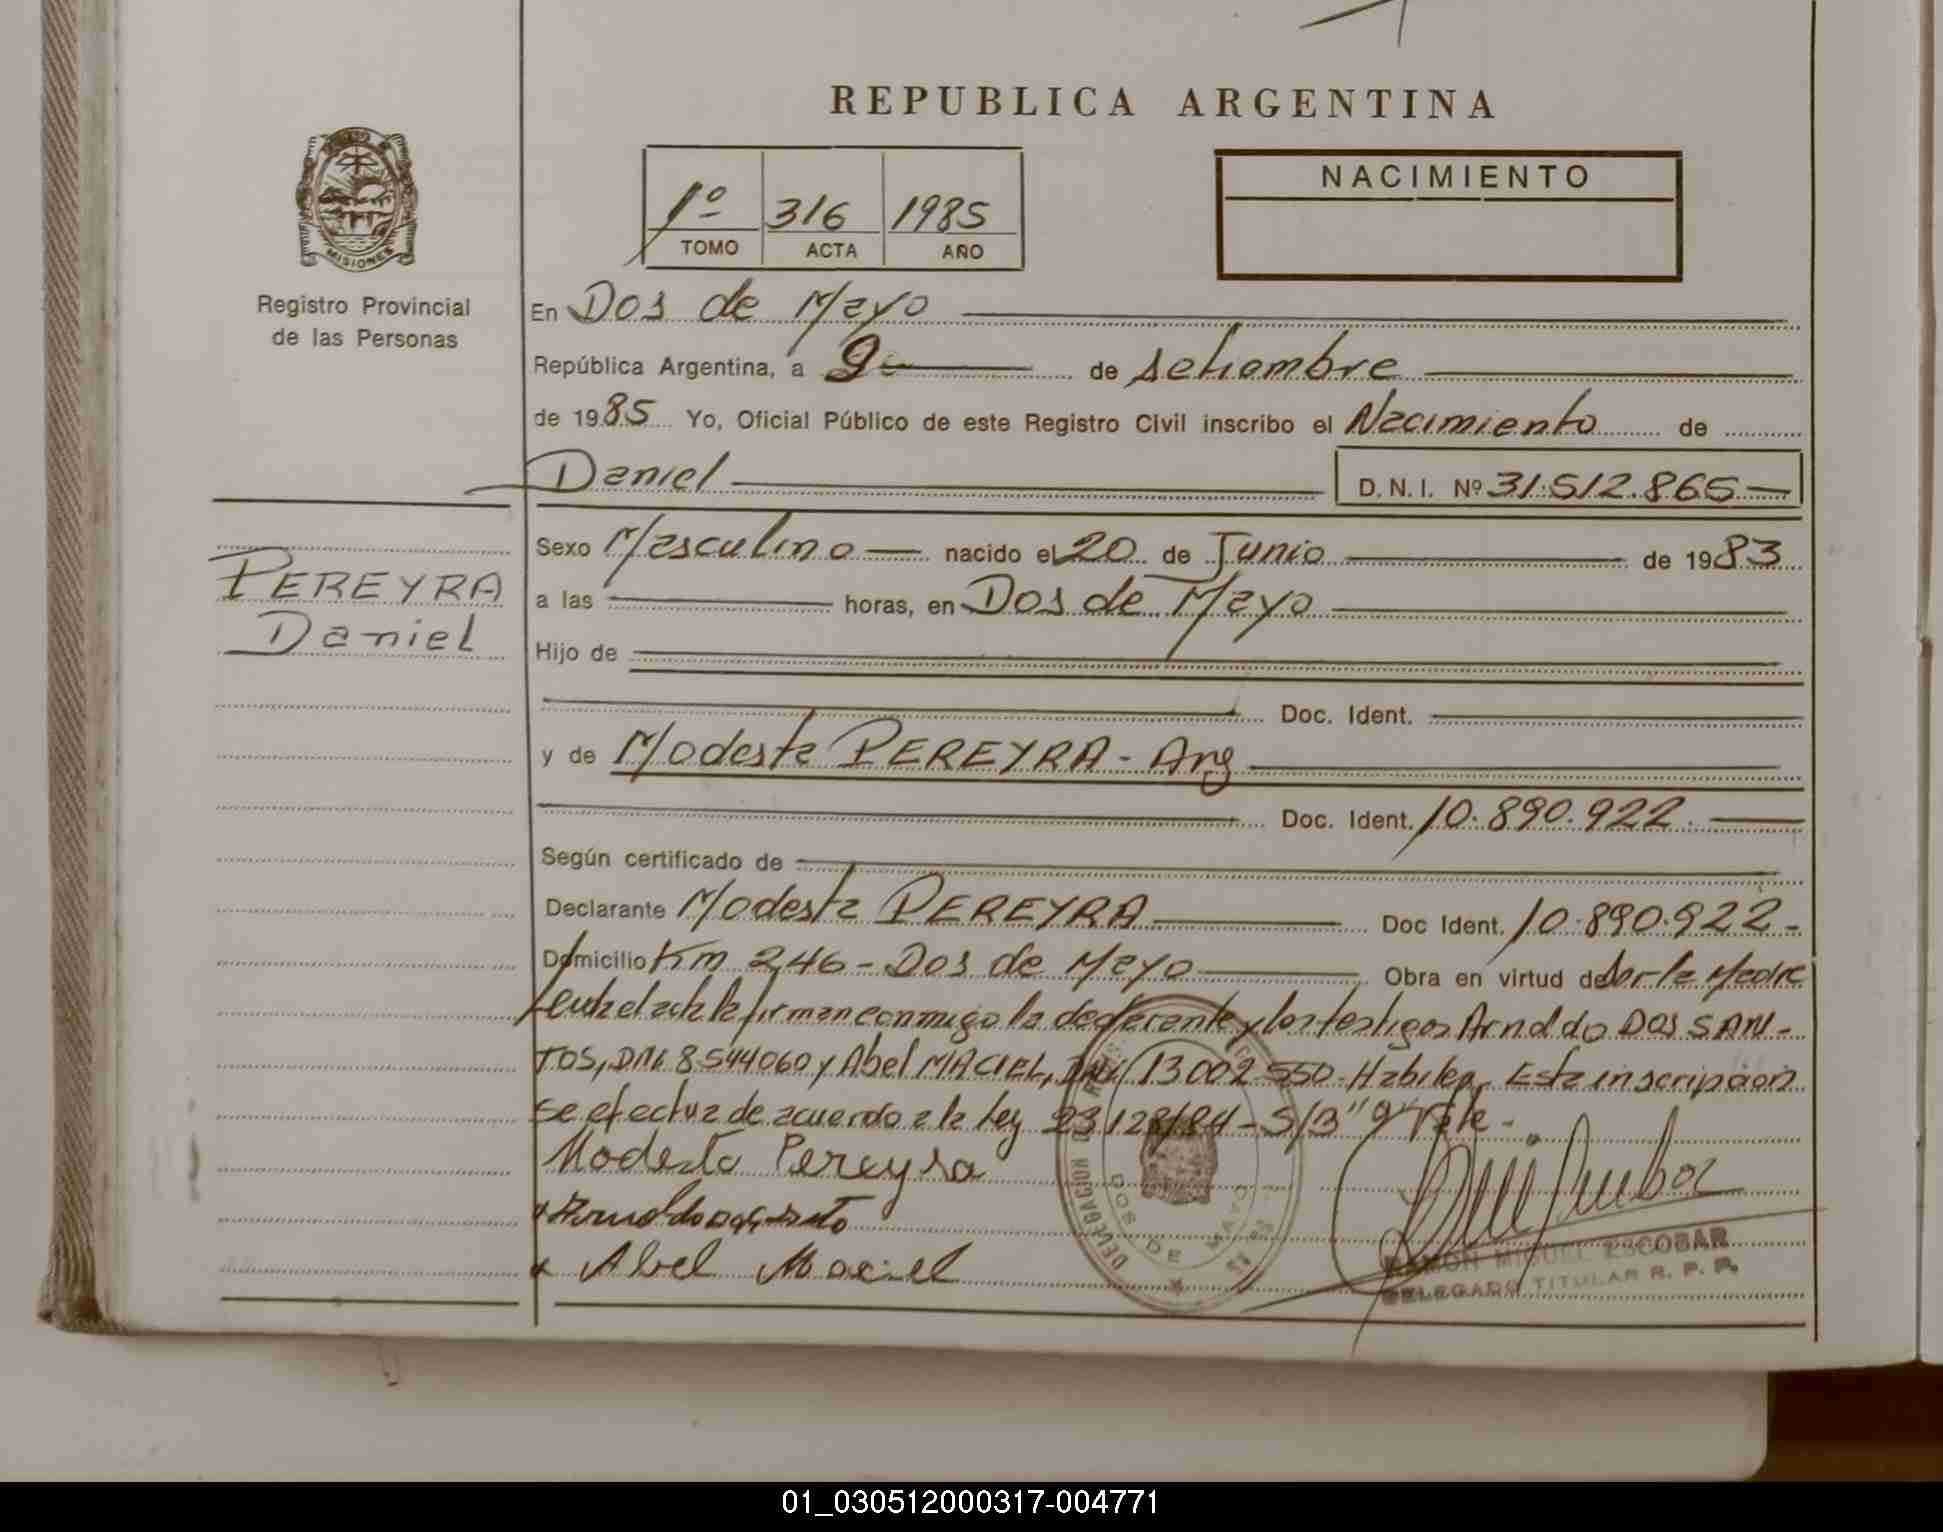 REPUBLICA ARGENTINA
NACIMIENTO
1º 316 1985
TOMO ACTA AÑO
MISIONES
Registro Provincial
de las Personas
En Dos de Mayo
República Argentina, a 9 de setiembre
de 1985 Yo, Oficial Público de este Registro Civil inscribo el Nacimiento de
Daniel D.N.I. Nº 31.512.865
PEREYRA
Daniel
Sexo Masculino nacido el 20 de Junio de 1983
a las horas, en Dos de Mayo
Hijo de
Doc. Ident.
y de Modesta PEREYRA - Arg
Doc. Ident. 10.890.922.
Según certificado de
Declarante Modesta PEREYRA Doc Ident. 10.890.922-
Domicilio Km 246 - Dos de Mayo Obra en virtud de ser la Madre
Leida el acta la firman conmigo la declarante y los testigos Arnoldo DOS SAN-
TOS, DNI 8.544060 y Abel MACIEL, DNI 13.002.550. Habiles. Esta inscripcion
se efectua de acuerdo a la Ley 23.128/84 - S/B
Modesta Pereyra
Abel Maciel
DELEGACION
DOS DE MAYO
RAMON MIGUEL ESCOBAR
DELEGADO TITULAR R. P. P.
01_030512000317-004771